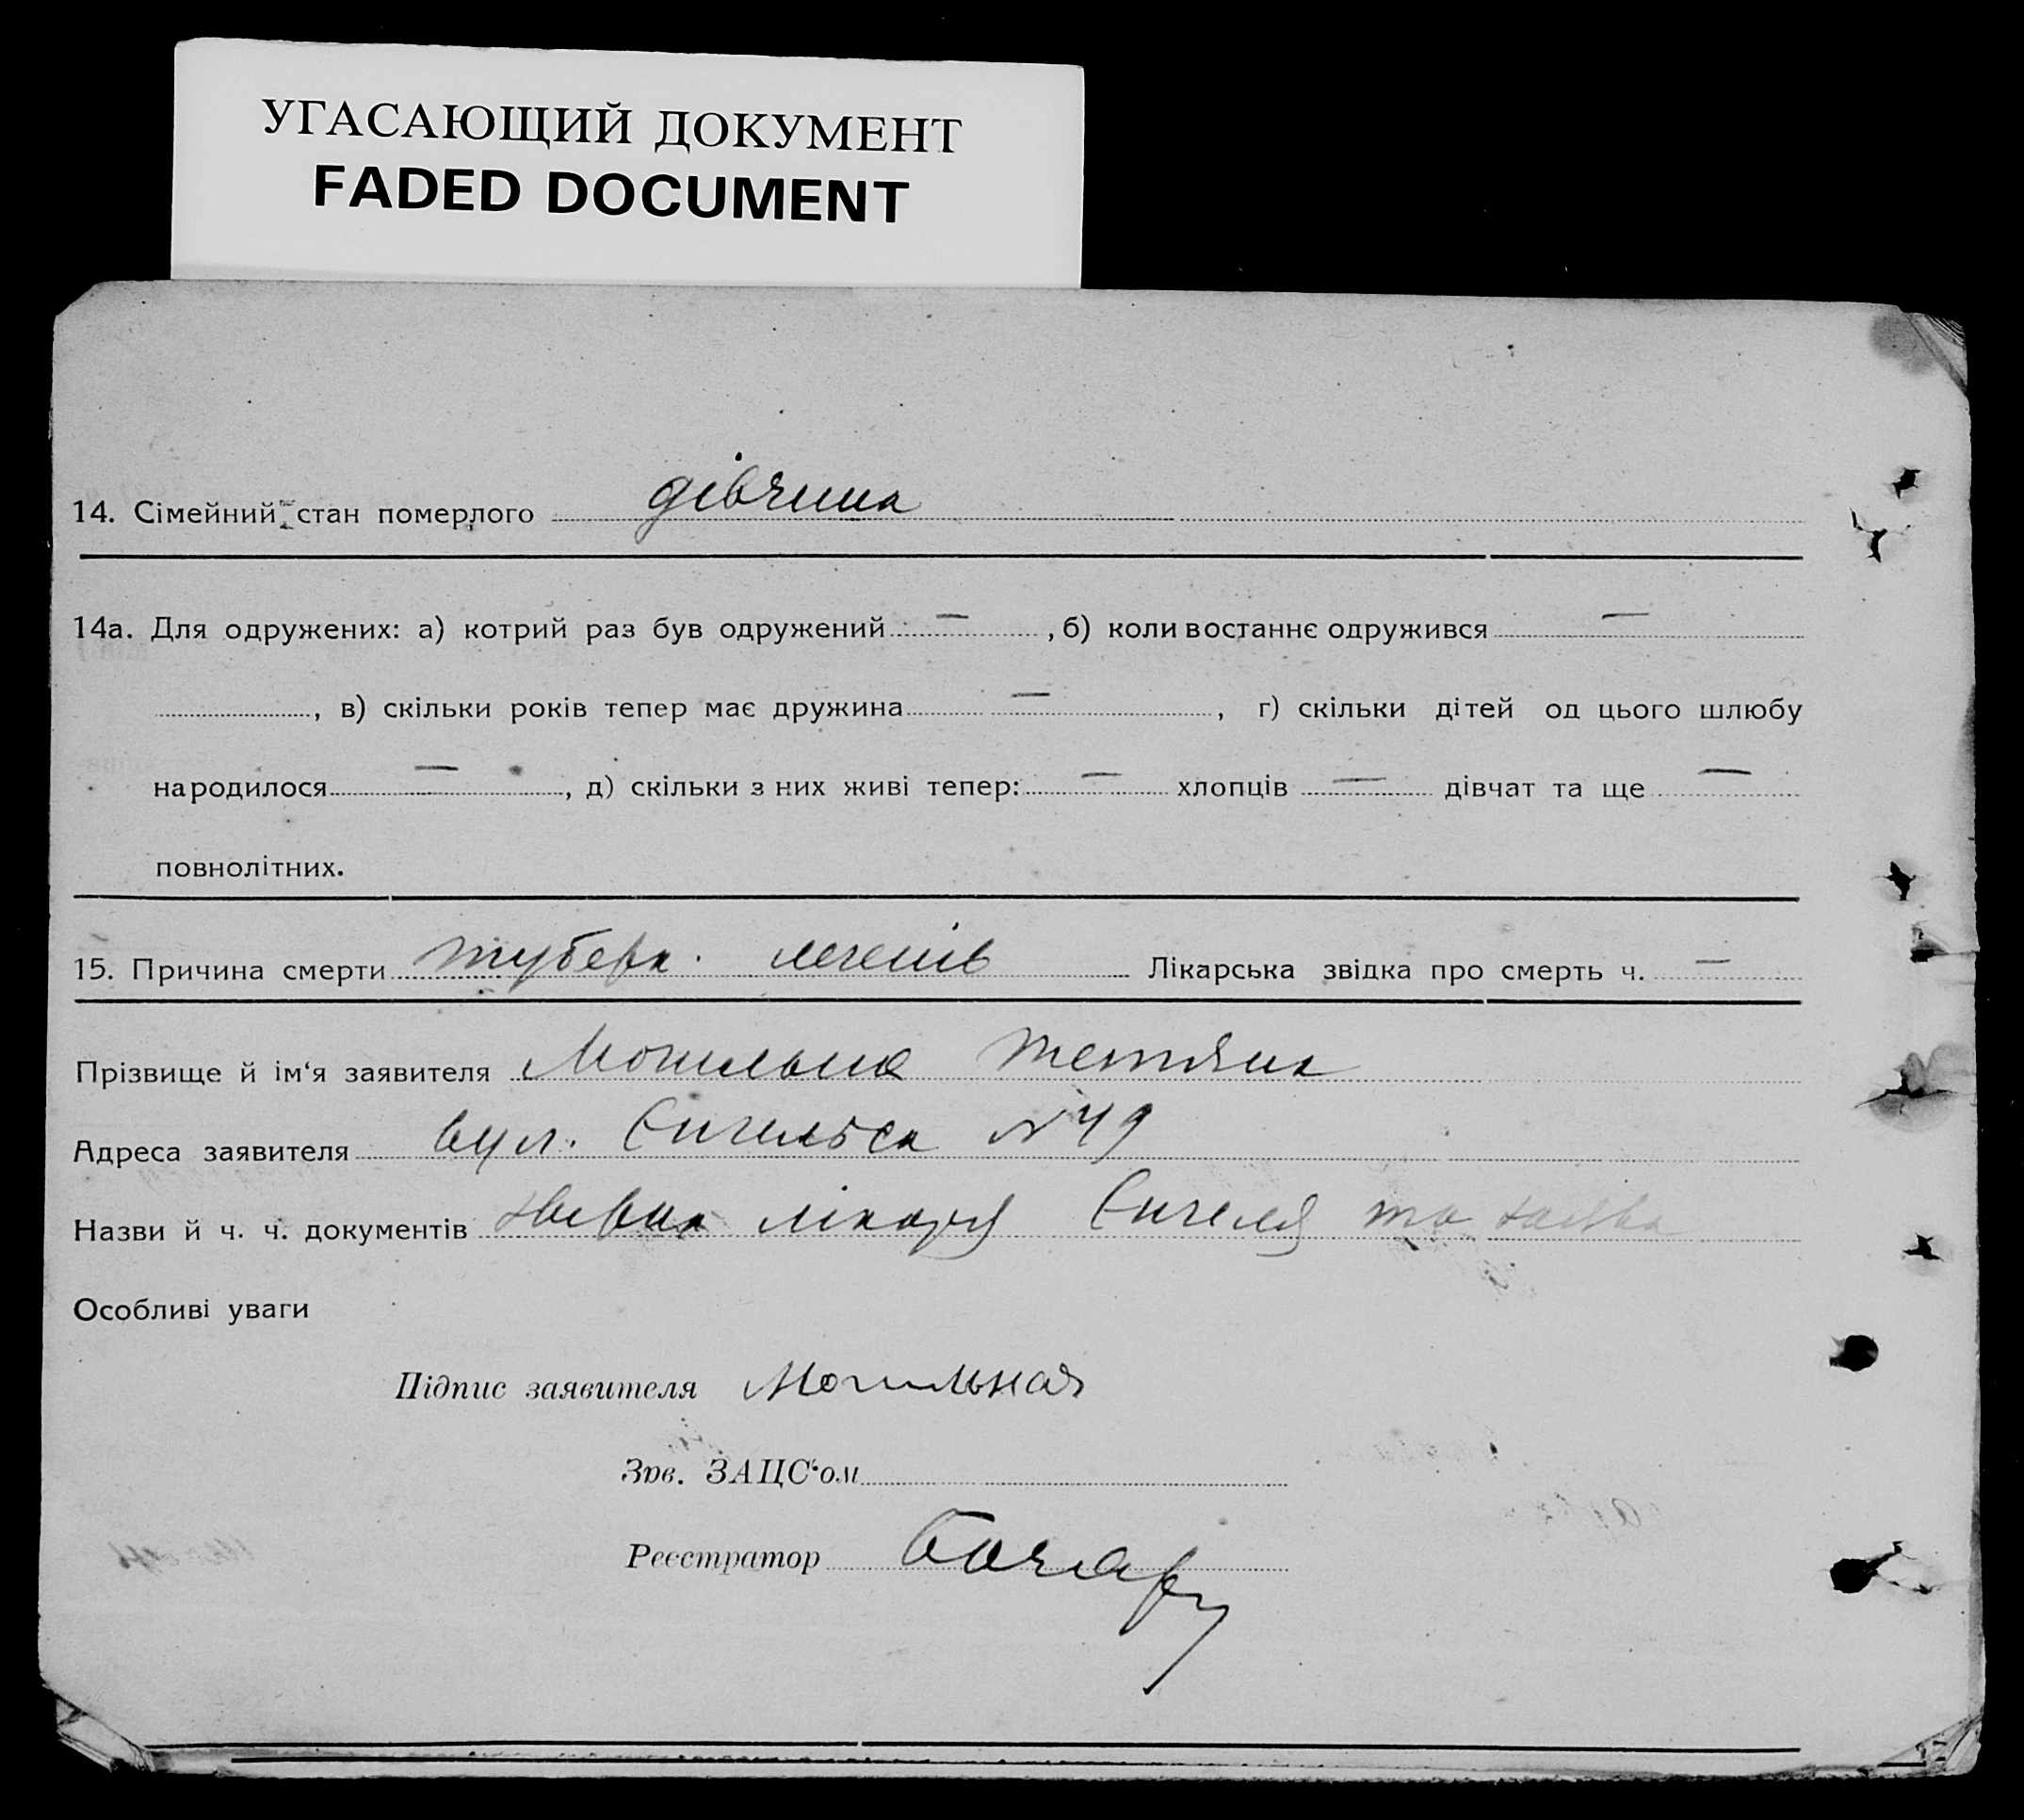 УГАСАЮЩИЙ ДОКУМЕНТ
FADED DOCUMENT
14. Сімейний стан померлого дівчина
14а. Для одружених: а) котрий раз був одружений —, б) коли востаннє одружився —
, в) скільки років тепер має дружина —, г) скільки дітей од цього шлюбу
народилося —, д) скільки з них живі тепер: — хлопців — дівчат та ще —
повнолітних.
15. Причина смерти туберк. легенів Лікарська звідка про смерть ч. —
Прізвище й ім‘я заявителя Могильна Тетяна
Адреса заявителя вул. Енгельса N 49
Назви й ч. ч. документів лікаря та заява
Особливі уваги
Підпис заявителя Могильная
Зав. ЗАЦС‘ом
Реєстратор